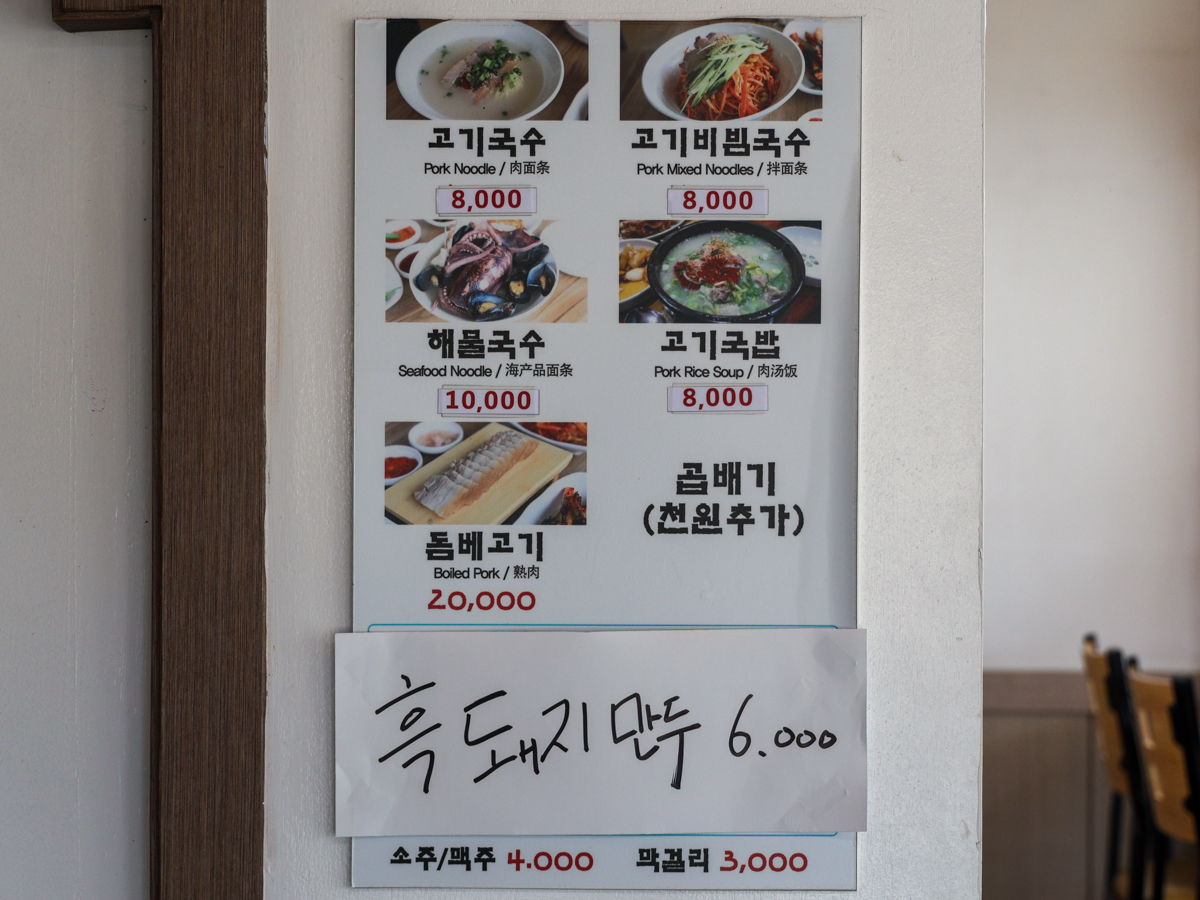 고기국수
Pork Noodle / 肉面条
8,000
고기비빔국수
Pork Mixed Noodles / 拌面条
8,000
해물국수
Seafood Noodle / 海产品面条
10,000
고기국밥
Pork Rice Soup / 肉汤饭
8,000
돔베고기
Boiled Pork / 熟肉
20,000
곱배기
(천원추가)
흑돼지만두 6.000
소주/맥주 4.000 막걸리 3,000